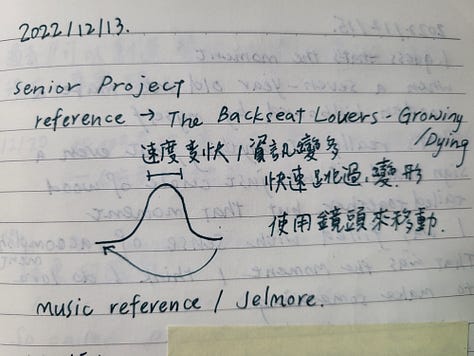 2022/12/13.
senior Project
reference → The Backseat Lovers - Growing
/Dying
速度變快/資訊變多
快速跳過.變形
使用鏡頭來移動.
music reference / Jelmore.